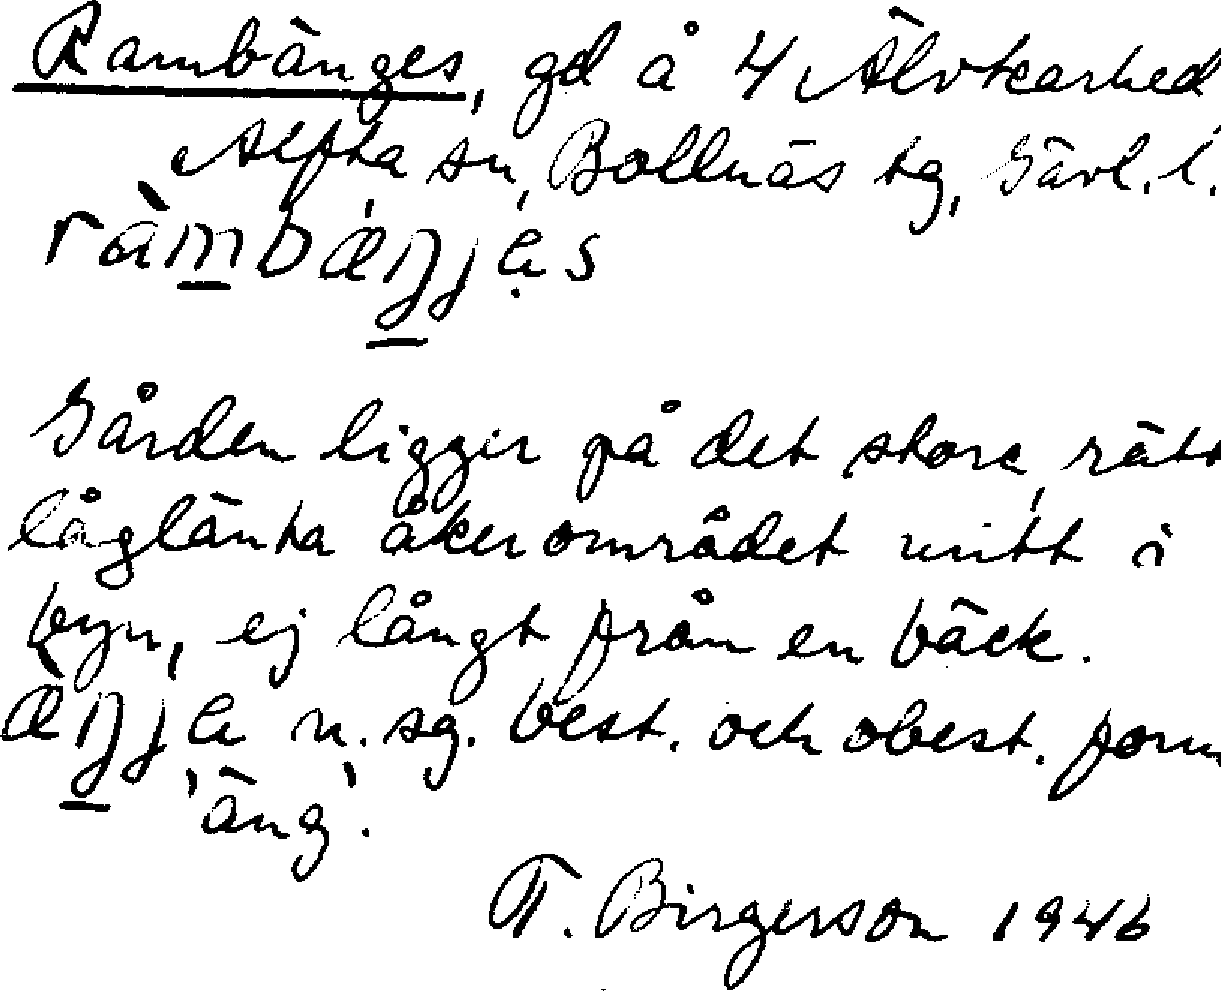 Rambänges, gd å 4 Älvkarhed
Alfta sn, Bollnäs tg, Gävl. l.
ràmbæŋjəs
Gården ligger på det stora, rätt
låglänta åkerområdet mitt i
byn, ej långt från en bäck.
æ̀ŋje n. sg. best. och obest. form
'äng'.
T. Birgerson 1946